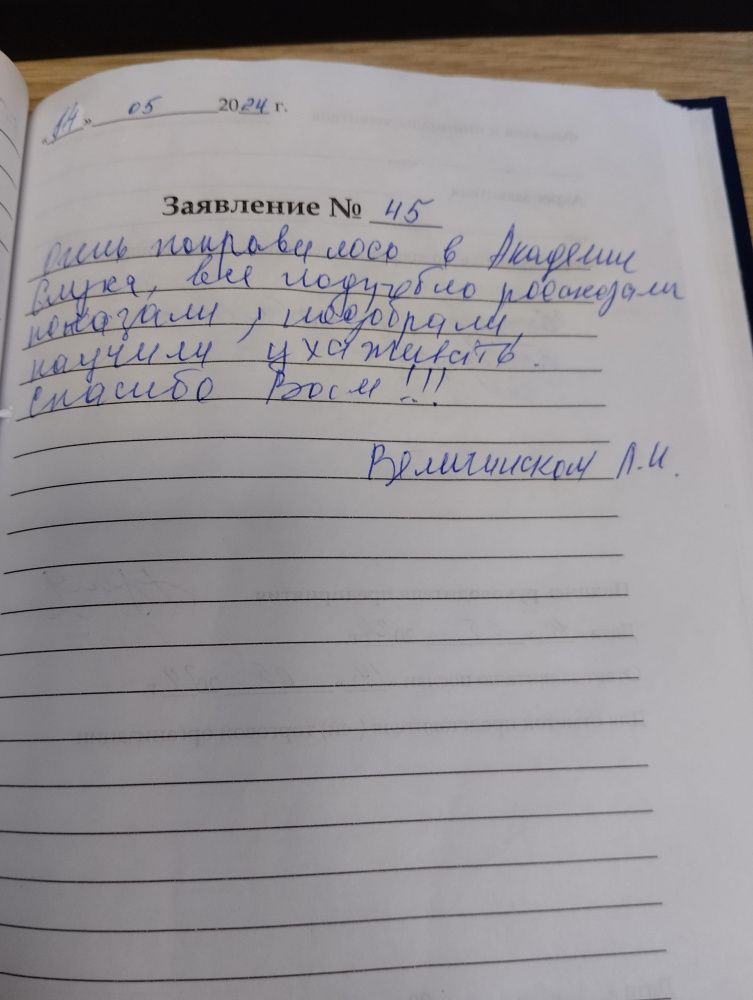 «14» 05 2024 г.
Заявление № 45
Очень понравилось в Академии
слуха, все подробно рассказали
показали, подобрали,
научили ухаживать.
Спасибо Вам!!!
Л.И.